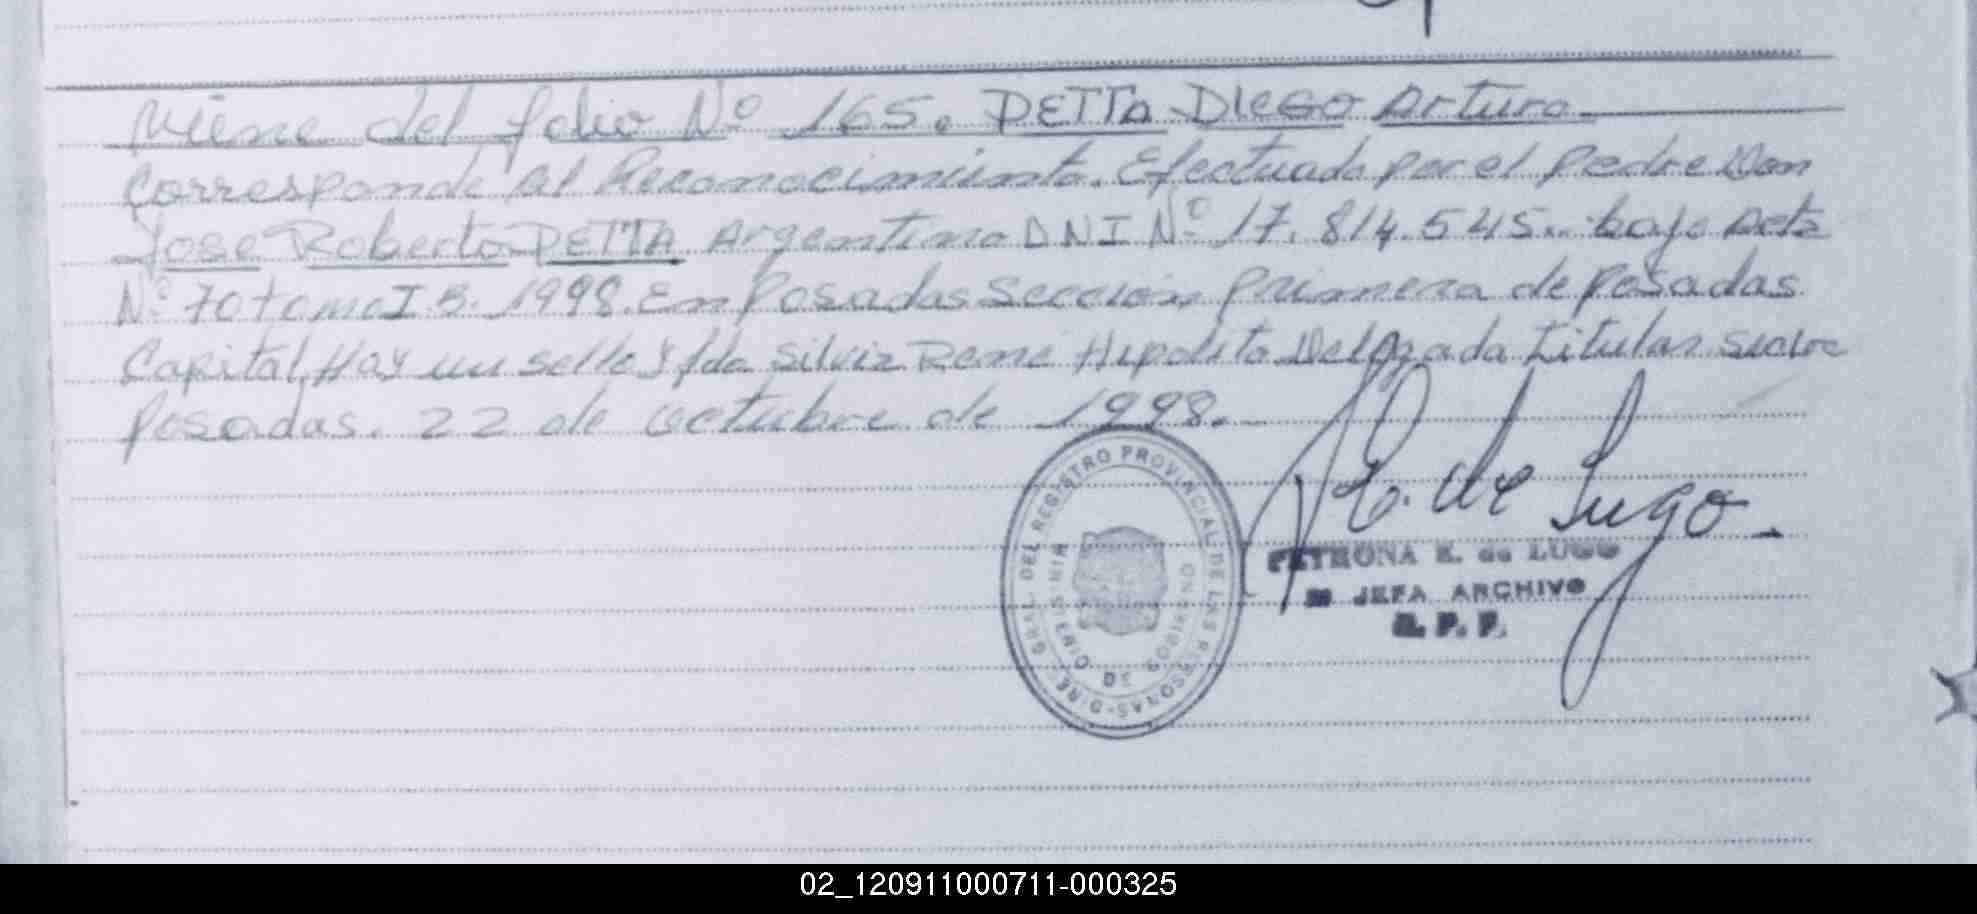 Viene del folio Nº 165. DETTA DIEGO Arturo
Corresponde al Reconocimiento. Efectuado por el padre Don
Jose Roberto DETTA Argentino DNI Nº 17.814.545.. bajo Acta
Nº 70 tomo I.B. 1998. En Posadas Sección Primera de Posadas
Capital, Hay un sello y fdo Silvia Rene Hipolito Delgado Titular
Posadas. 22 de octubre de 1998.
DIREC. GRAL. DEL REGISTRO PROVINCIAL DE LAS PERSONAS-
MINISTERIO DE GOBIERNO
P.E. de Lugo.
PETRONA E. de LUGO
JEFA ARCHIVO
R. P. P.
02_120911000711-000325